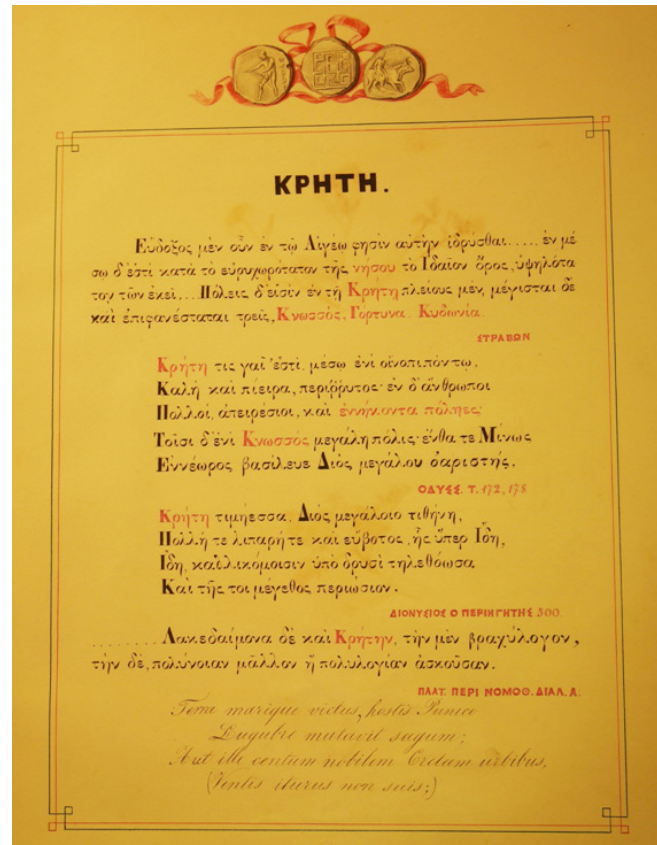 ΚΡΗΤΗ.
Εὔδοξος μὲν οὖν ἐν τῷ Αἰγέω φησὶν αὐτὴν ἱδρύσθαι..... ἐν μέ
σω δ'ἐστὶ κατὰ τὸ εὐρυχωρότατον τῆς νήσου τὸ Ἰδαῖον ὄρος, ὑψηλότα
τον τῶν ἐκεῖ.... Πόλεις δ'εἰσὶν ἐν τῇ Κρήτῃ πλείους μὲν, μέγισται δὲ
καὶ ἐπιφανέσταται τρεῖς, Κνωσσὸς, Γόρτυνα. Κυδωνία.
ΣΤΡΑΒΩΝ
Κρήτη τις γαῖ' ἐστὶ, μέσω ἐνὶ οἴνοπι πόντῳ,
Καλὴ καὶ πίειρα, περίῤῥυτος· ἐν δ'ἄνθρωποι
Πολλοὶ, ἀπειρέσιοι, καὶ ἐννήκοντα πόληες·
Τοῖσι δ'ἐνὶ Κνωσσὸς μεγάλη πόλις· ἔνθα τε Μίνως
Ἐννέωρος βασίλευε Διὸς μεγάλου ὀαριστής.
ΟΔΥΣΣ. Τ. 172, 178
Κρήτη τιμήεσσα, Διὸς μεγάλοιο τιθήνη,
Πολλή τε λιπαρή τε καὶ εὔβοτος, ἧς ὕπερ Ἴδη,
Ἴδη, καλλικόμοισιν ὑπὸ δρυσὶ τηλεθόωσα
Καὶ τῆς τοι μέγεθος περιώσιον.
ΔΙΟΝΥΣΙΟΣ Ο ΠΕΡΙΗΓΗΤΗΣ 500.
........ Λακεδαίμονα δὲ καὶ Κρήτην, τὴν μὲν βραχύλογον,
τὴν δὲ, πολύνοιαν μᾶλλον ἢ πολυλογίαν ἀσκοῦσαν.
ΠΛΑΤ. ΠΕΡΙ ΝΟΜΟΘ. ΔΙΑΛ. Α.
Terra marique victus, hostis Punico
Lugubre mutavit sagum;
Aut ille centum nobilem Cretam urbibus,
(Ventis iturus non suis;)